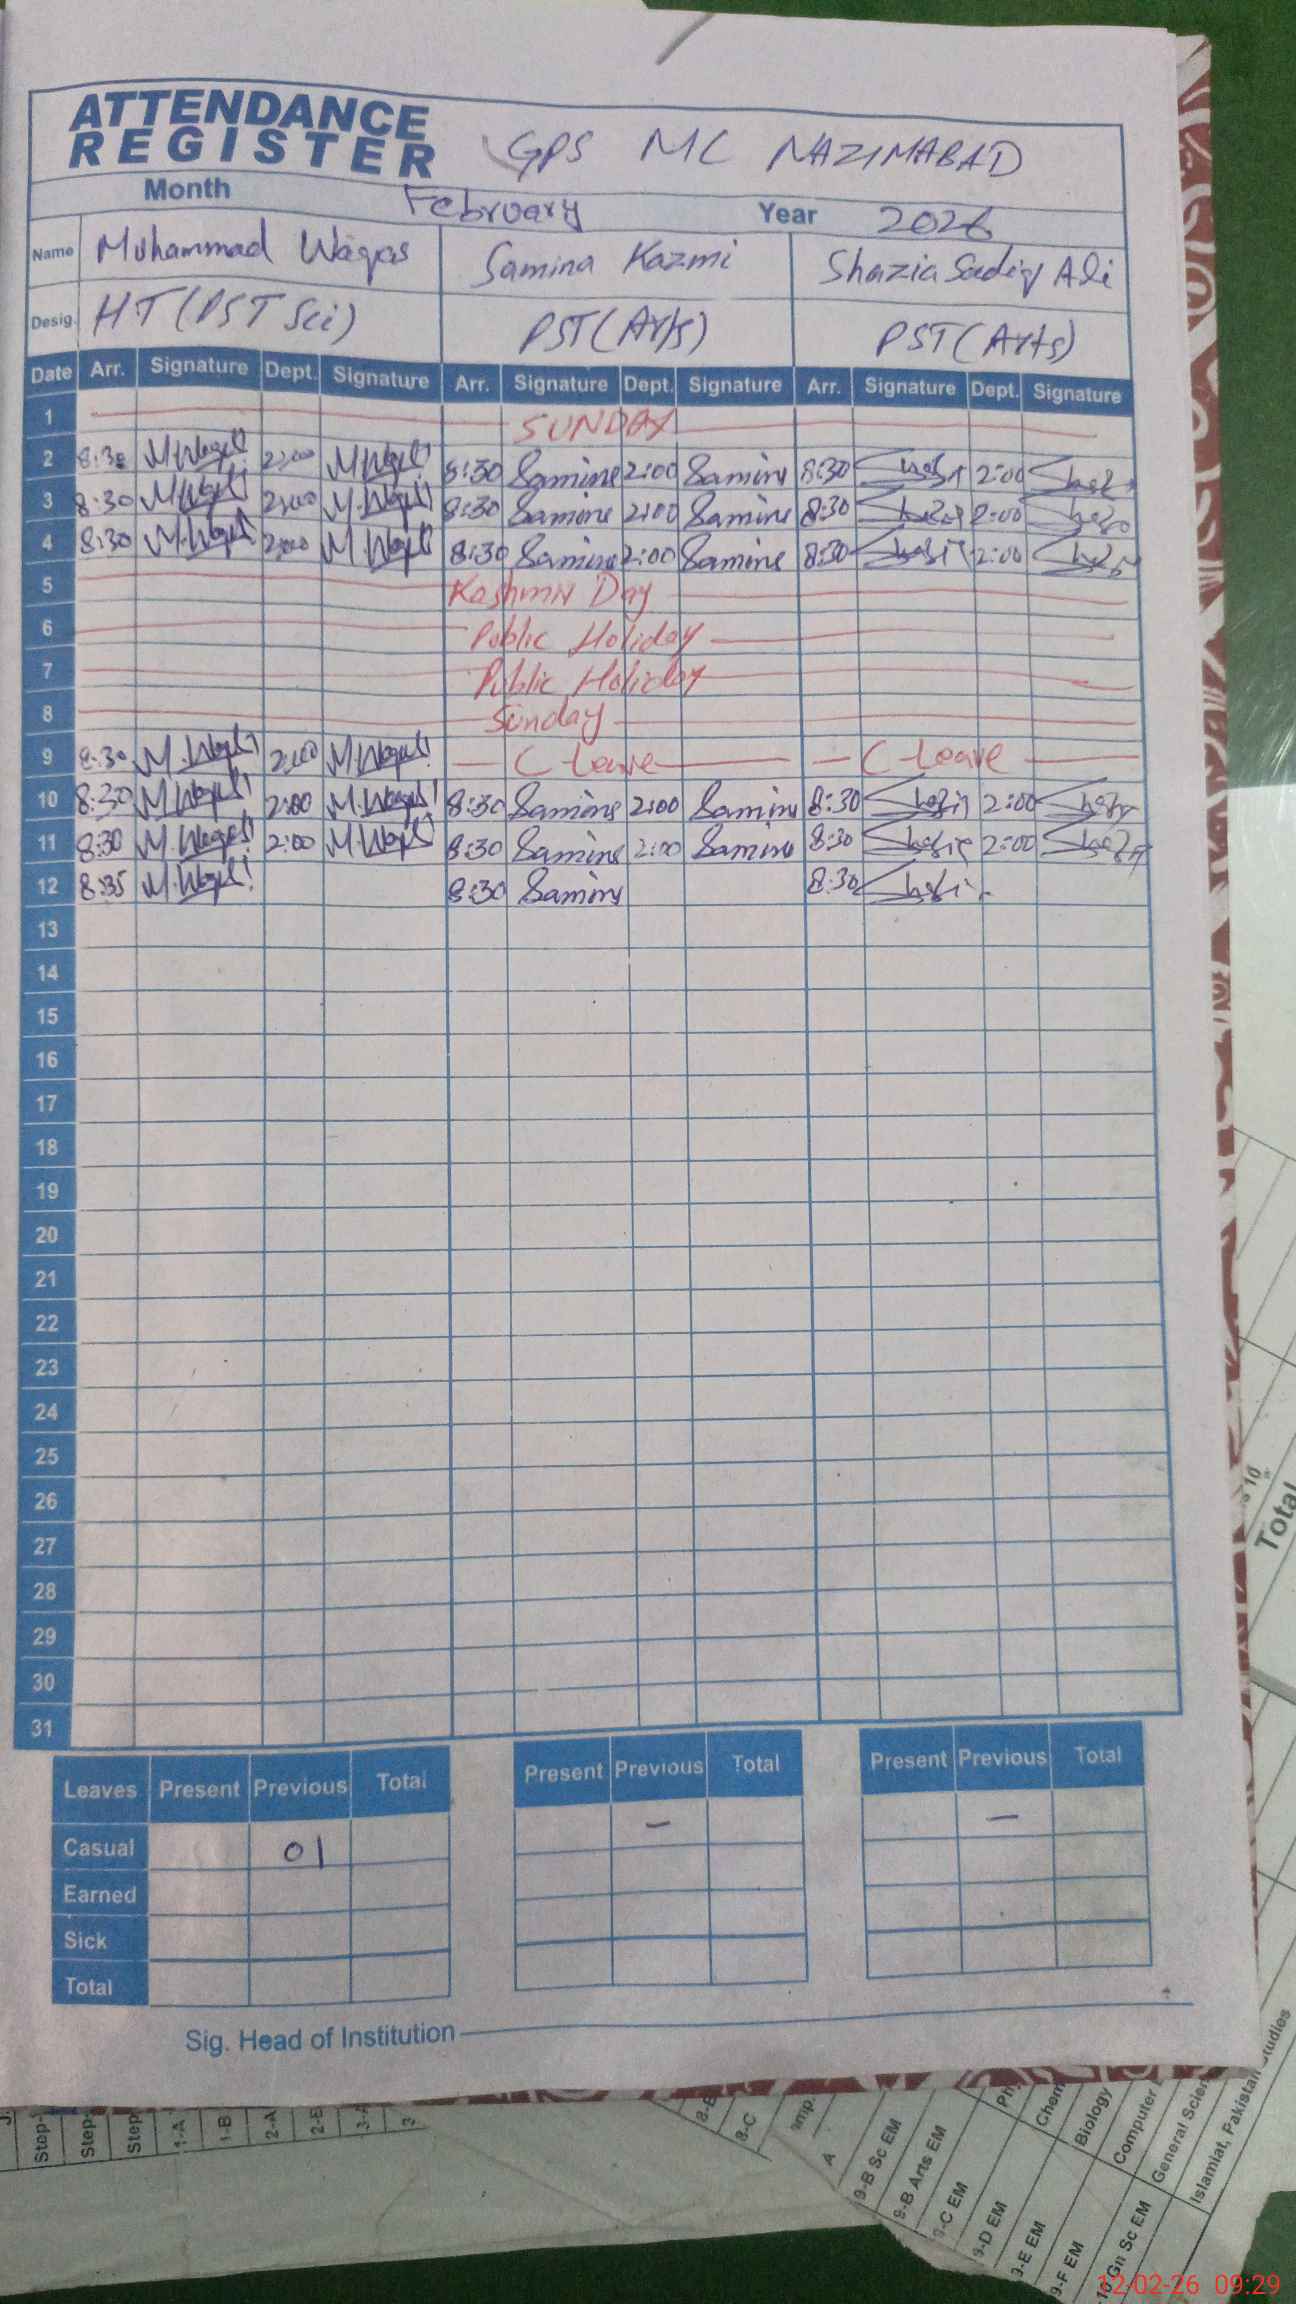 ATTENDANCE
REGISTER
GPS MC NAZIMABAD
Month February Year 2026
Name Muhammad Waqas Samina Kazmi Shazia Sadiq Ali
Desig. HT (PST Sci) PST (Arts) PST (Arts)
Date Arr. Signature Dept. Signature Arr. Signature Dept. Signature Arr. Signature Dept. Signature
1 SUNDAY
2 8:30 M.Waqas 2:00 M.Waqas 8:30 Samina 2:00 Samina 8:30 Shazia 2:00 Shazia
3 8:30 M.Waqas 2:00 M.Waqas 8:30 Samina 2:00 Samina 8:30 Shazia 2:00 Shazia
4 8:30 M.Waqas 2:00 M.Waqas 8:30 Samina 2:00 Samina 8:30 Shazia 2:00 Shazia
5 Kashmir Day
6 Public Holiday
7 Public Holiday
8 Sunday
9 8:30 M.Waqas 2:00 M.Waqas C-Leave C-Leave
10 8:30 M.Waqas 2:00 M.Waqas 8:30 Samina 2:00 Samina 8:30 Shazia 2:00 Shazia
11 8:30 M.Waqas 2:00 M.Waqas 8:30 Samina 2:00 Samina 8:30 Shazia 2:00 Shazia
12 8:35 M.Waqas 8:30 Samina 8:30 Shazia
13
14
15
16
17
18
19
20
21
22
23
24
25
26
27
28
29
30
31
Leaves Present Previous Total Present Previous Total Present Previous Total
Casual 01 - -
Earned
Sick
Total
Sig. Head of Institution
10
Total
Step-
Step-
Step
1-A
1-B
2-A
3
8-C
A
9-B Sc EM
9-B Arts EM
9-C EM
9-D EM
9-E EM
9-F EM
Gn Sc EM
Chem
Biology
Computer
General Scien
Islamiat, Pakistan Studies
12-02-26 09:29